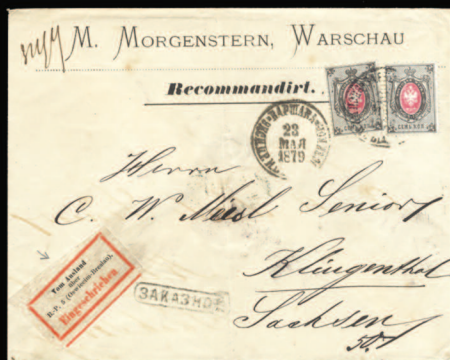 M. MORGENSTERN, WARSCHAU
Recommandirt.
23
МАЯ
1879
Herrn
C. W. Meisl Senior
Klingenthal
Sachsen
Vom Ausland
über
Eingeschrieben
ЗАКАЗНОЕ